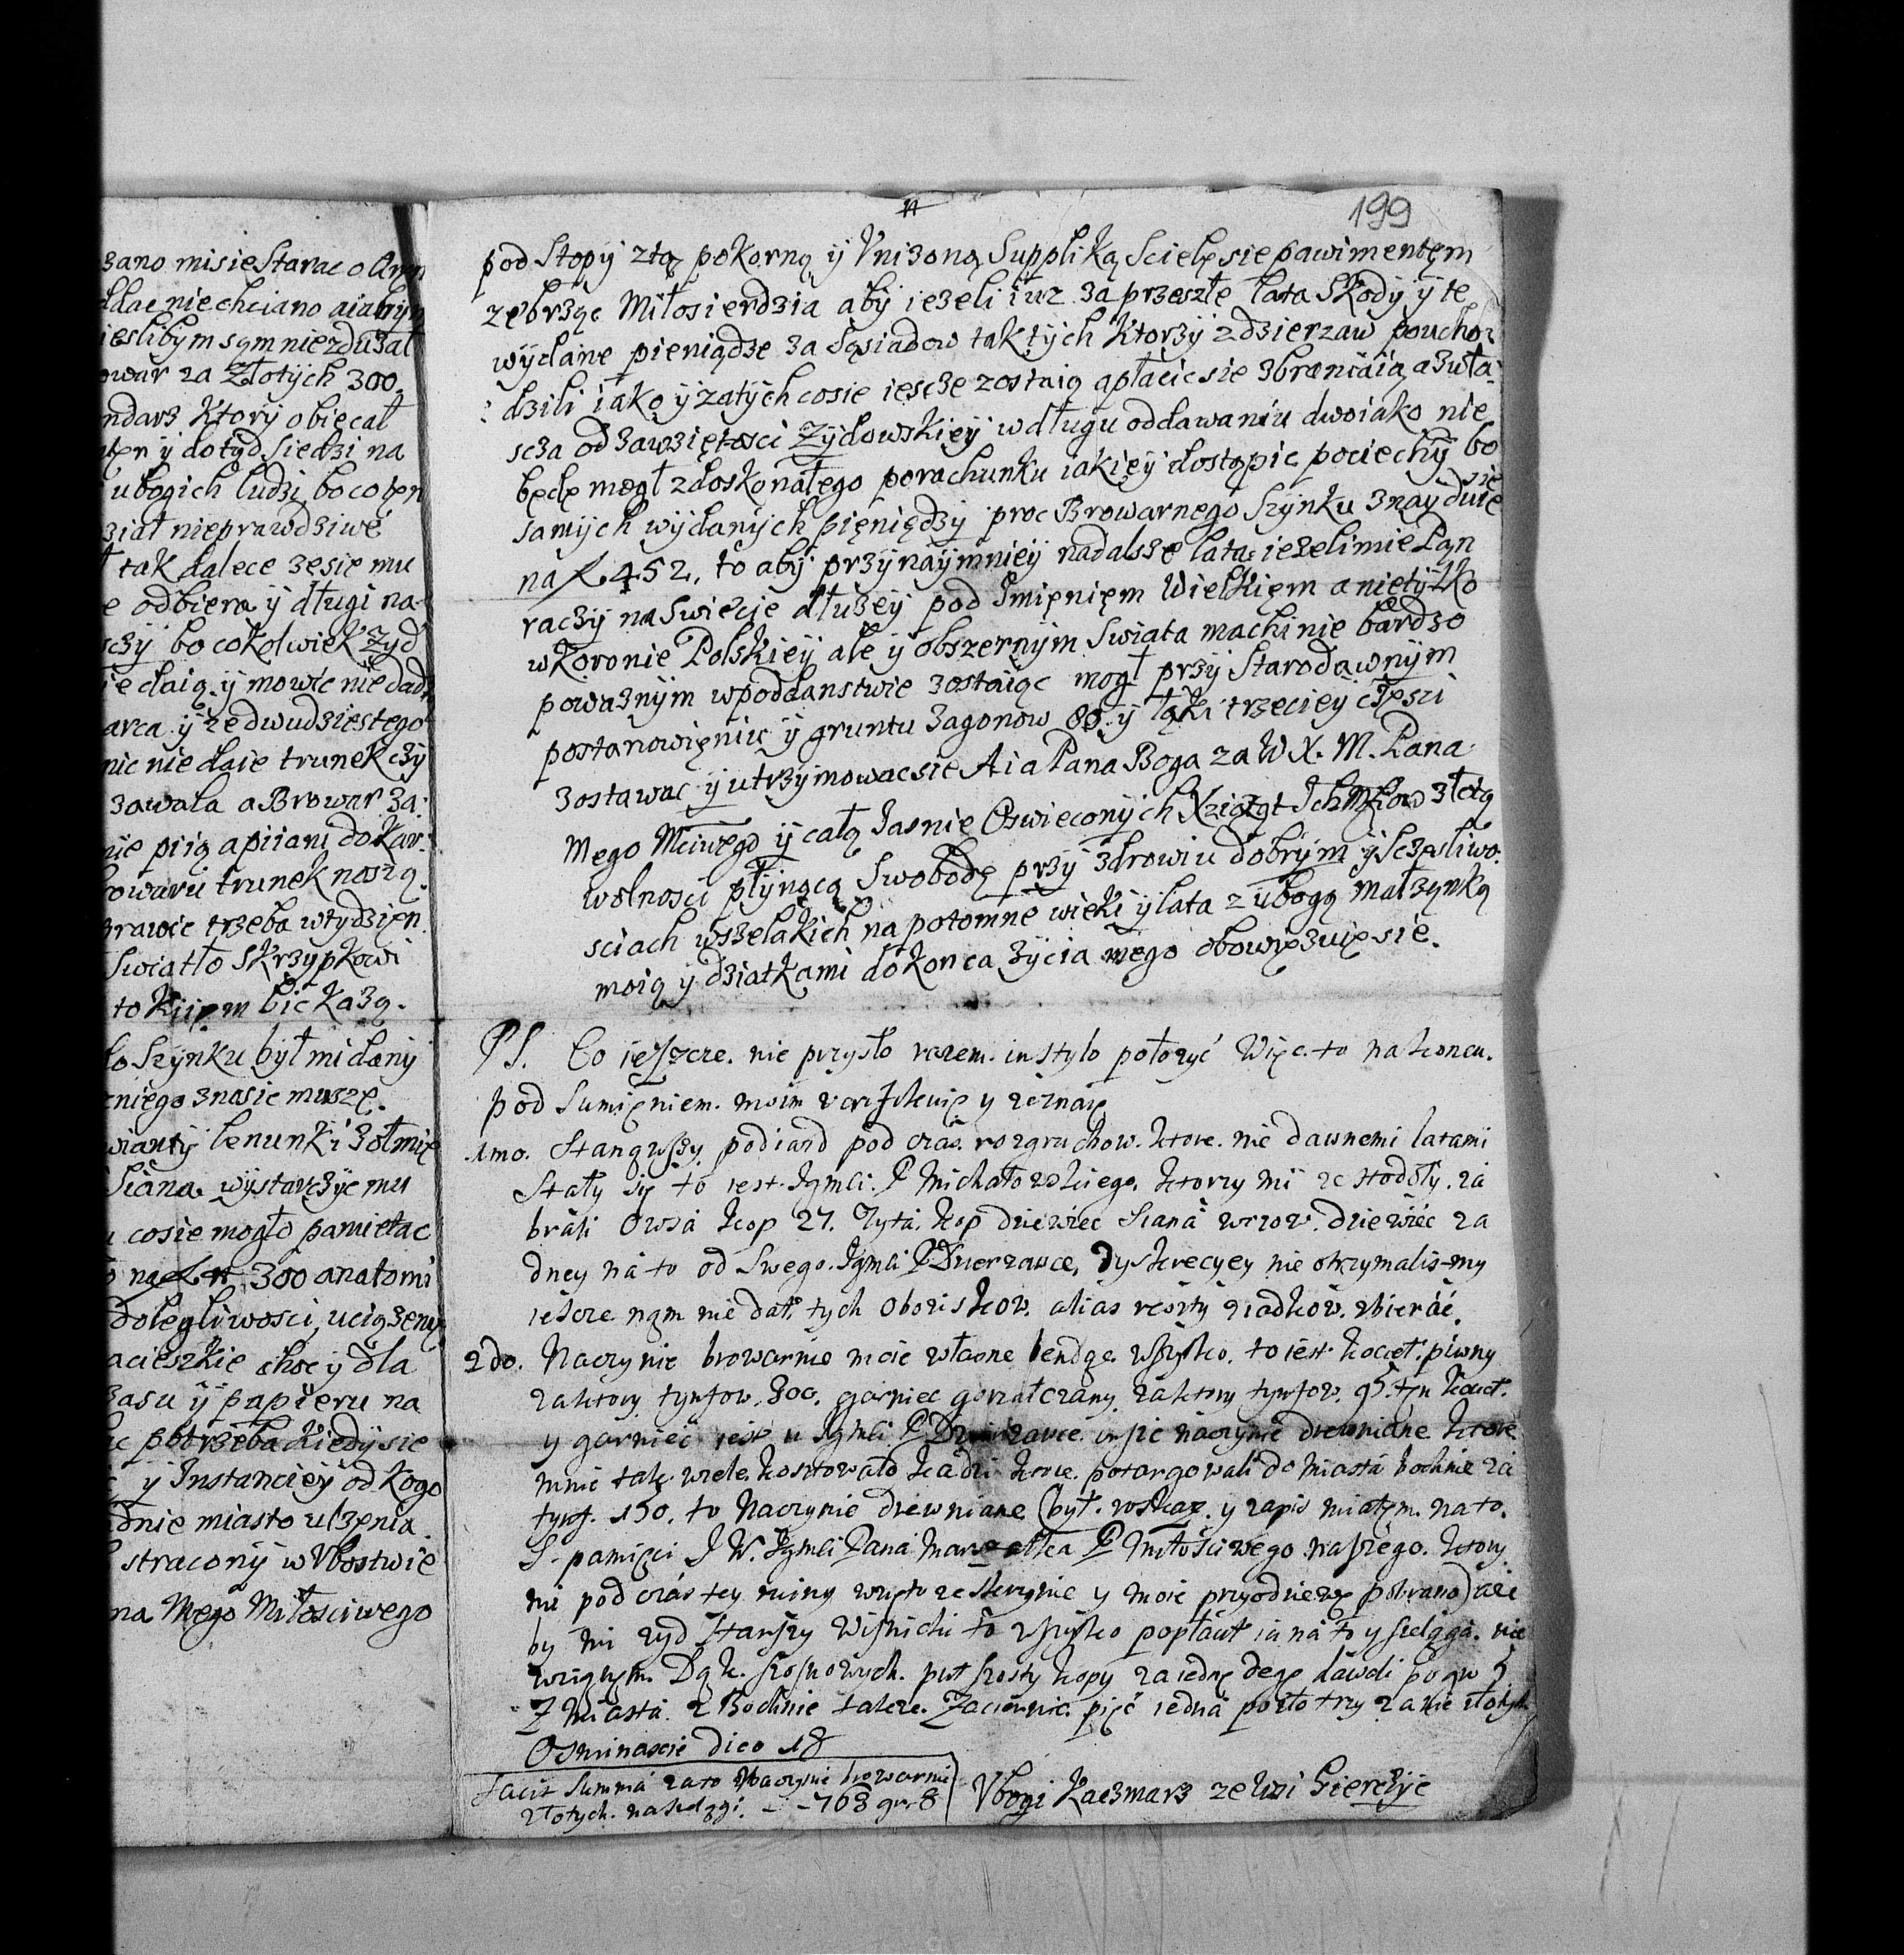 zano mi sie Starac o Aren
ddac niechciano aiabym
ieslibym sąm niezdużał
owar za Złotych 300.
ndarz Ktory obiecał
y dotyd siedzi na
ubogich ludzi, bo co ten
ział nieprawdziwe
tak dalece zesie mu
e odbiera ÿ długi na-
bo cokolwiek Zyd
ie daią ÿ mowic niedadz
arca ÿ zedwudziestego
nic niedaie trunek czy
zawala a Browar za:
nie piią apiiani do Kar:
owaru trunek noszą.
prawic trzeba wtydzięn
Swiatło Skrzypkowi
to Kiięm bic Kazą.
do Szynku był mi dany
zniego znosic muszę.
wianty lenunki Zołmie
Siana wystarczyc mu
cosie mogło pamietac
na 300 anatomi
dolegliwosci, uciązeny
acieszkie choc ÿ dla
zasu ÿ papieru na
potrzeba Kiedy sie
ÿ Instanciey od Kogo
dnie miasto ulzenia
straconÿ w Vbostwie
na Mego Miłosciwego
199
pod Stopÿ ztą pokorną ÿ Vnizoną Suppliką Scielę sie pawimentęm
zebrząc Miłosierdzia abÿ iezeli iuz za przeszłe lata Skodÿ ÿ te
wÿdane pieniądze za Sąsiadow tak tych Ktorzÿ zdzierzaw poucho
dzili iako ÿ zatych cosie iescze zostaią apłacic sie zbraniaią, azwła
scza od zawziętosci Zydowskieÿ wdługu oddawaniu dwoiako nie
będę mogł zdoskonałego porachunku iakieÿ dostąpic pociechÿ bo
samÿch wÿdanÿch pięniędzÿ proc Browarnego Szynku znayduie sie
na 452, to abÿ przÿnaÿmnieÿ nadalsze lata iezeli mie Pan
raczÿ na Swiecie dłuzeÿ pod Imięnięm Wielkięm a nietÿlko
wKoronie Polskieÿ ale ÿ obszernÿm Swiata machinie bardzo
powaznÿm wpoddanstwie zostaiąc mogł przÿ Starodawnÿm
postanowięniu ÿ gruntu zagonow 80 ÿ łąki trzecieÿ częsci
zostawac ÿ utrzymowac sie A ia Pana Boga za W X. M. Pana
Mego Mciwego ÿ całą Jasnie Oswieconÿch Xziążąt Ichmciow złotą
wolnosci płÿnącą Swobodę przÿ zdrowiu dobrÿm ÿ Sczęsliwo:
sciach wszelakich na potomne wieki ÿ lata z ubogą małzonką
moią ÿ dziatkami do Konca zÿcia mego obowięzuię sie.
PS. Co ieszcze. nie przysło razem. in stylo położyć Więc. to na koncu.
pod Sumięniem. moim y zeznaię
1mo. Stanąwszy podiazd pod czas. rozgruchow. ktore. nie dawnemi latami
Stały się to iest. Jgmci. P Michałowskiego. ktorzy mi ze stodoły. za
brali Owsa kop 27. Zyta. kop dziewiec Siana wozow. dziewiec za
dney na to od Swego. Jgmci P Dzierzawce, dyskrecyey nie otrzymalis-my
ieszcze nąm nie dał. tych oboziskow. alias reszty ziadkow. zbierać.
2do. Naczynie browarnie moie własne bendąc. wszystko. to iest kocieł. piwny
za ktory tynfow. 300. garniec gorzałczany. za ktory tynfow. 95. ten kocieł.
y garniec iest u Jgmci P Dzierzawce. insze naczynie drewniane ktore
mnie tak. wiele. kosztowało kadzi ktore. potargowali do Miasta Bochnie za
tynf. 150. to Naczynie drewniane (był. roskaz. y zapis miałem. na to.
S. pamięci J W. Jgmci Pana Marszałka P miłościwego naszego. ktory.
mi pod czas tey ruiny wzięto ze skrzynie y moie przyodziewę pobrano) aze
by mi zyd Starszy Wisnicki to wszystko popłacił ia na to y szeląga. nie
wziąłem. Dąk. szosnowych. puł szosty kopy za iednę dęgę dawali po gr. 5
Z Miasta. z Bochnie takze. Zaciernic. pięć iedna poszło trzy za nie złotych
Osminascie dico 18
Facit Summa za to Naczynie browarnie
złotych. naszedzgi. - - 768 gr. 8
Vbogi Kaczmarz ze wsi Gierczyc